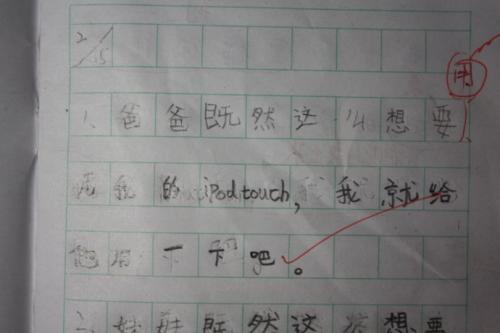 2/15
1、爸爸既然这么想要 用
我的ipodtouch,我就给
他用一下下吧。
既然这么想要